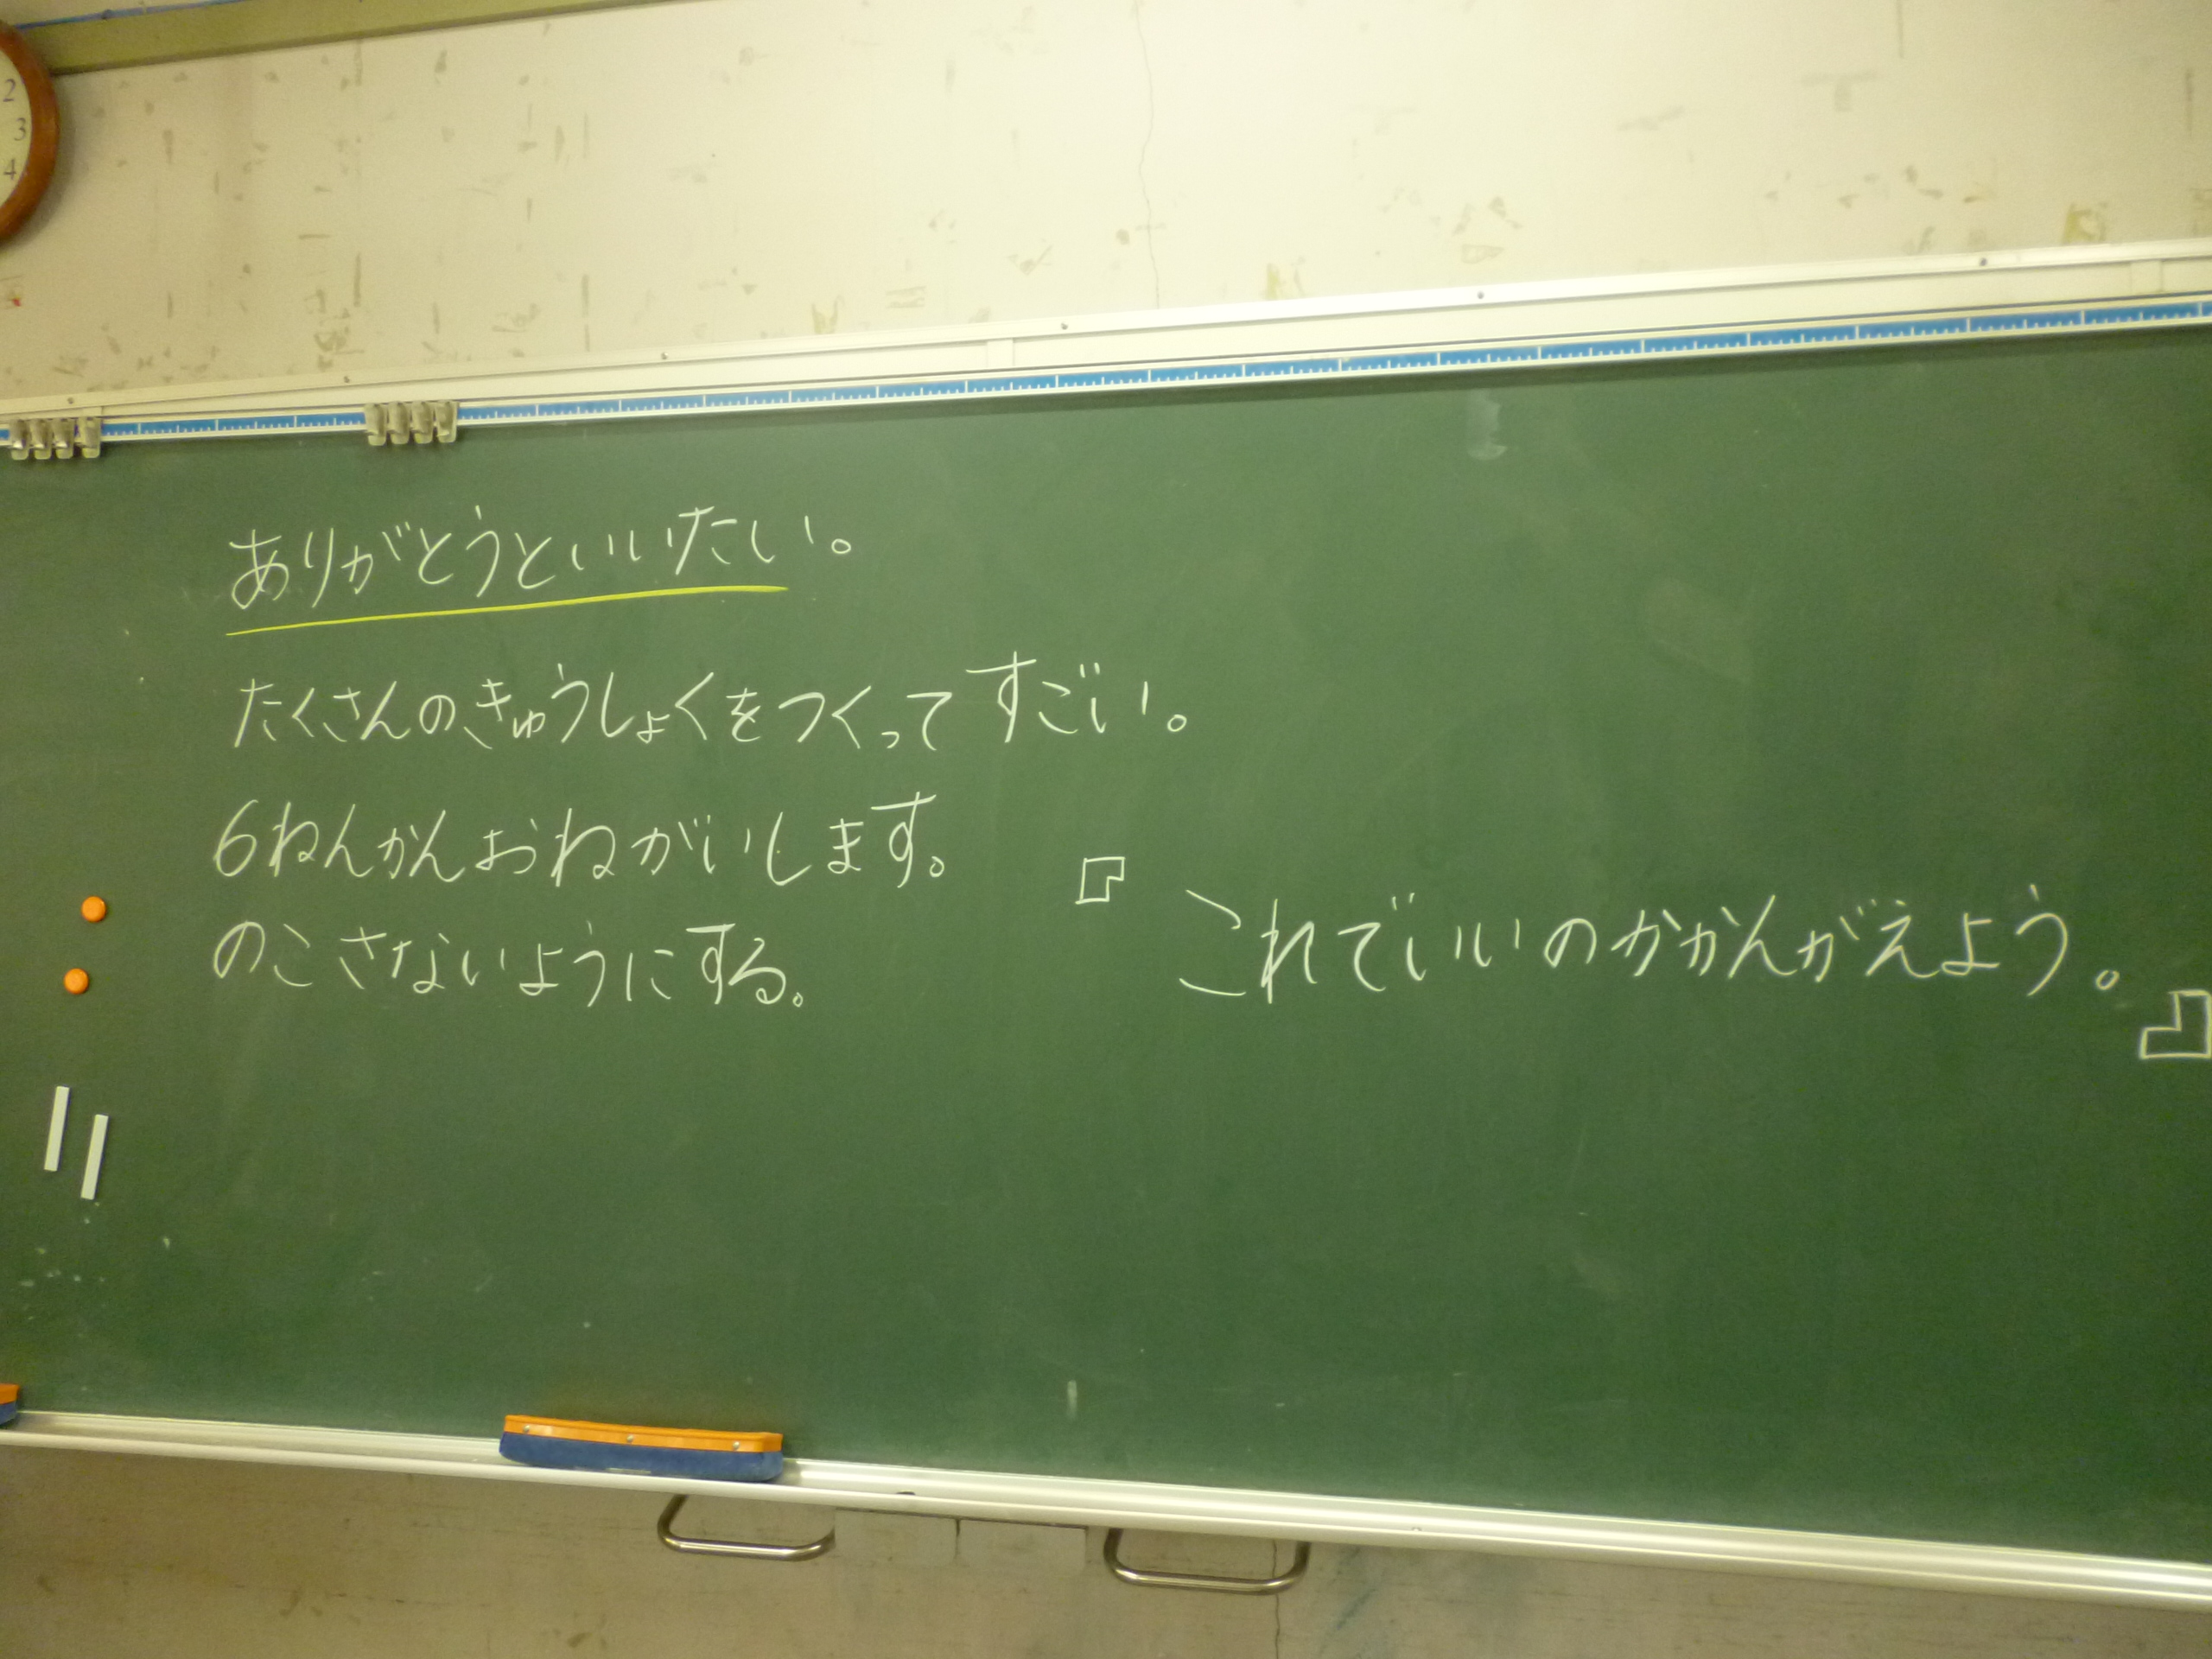 2
3
4
ありがとうといいたい。
たくさんのきゅうしょくをつくってすごい。
6ねんかんおねがいします。
のこさないようにする。
『これでいいのかかんがえよう。』